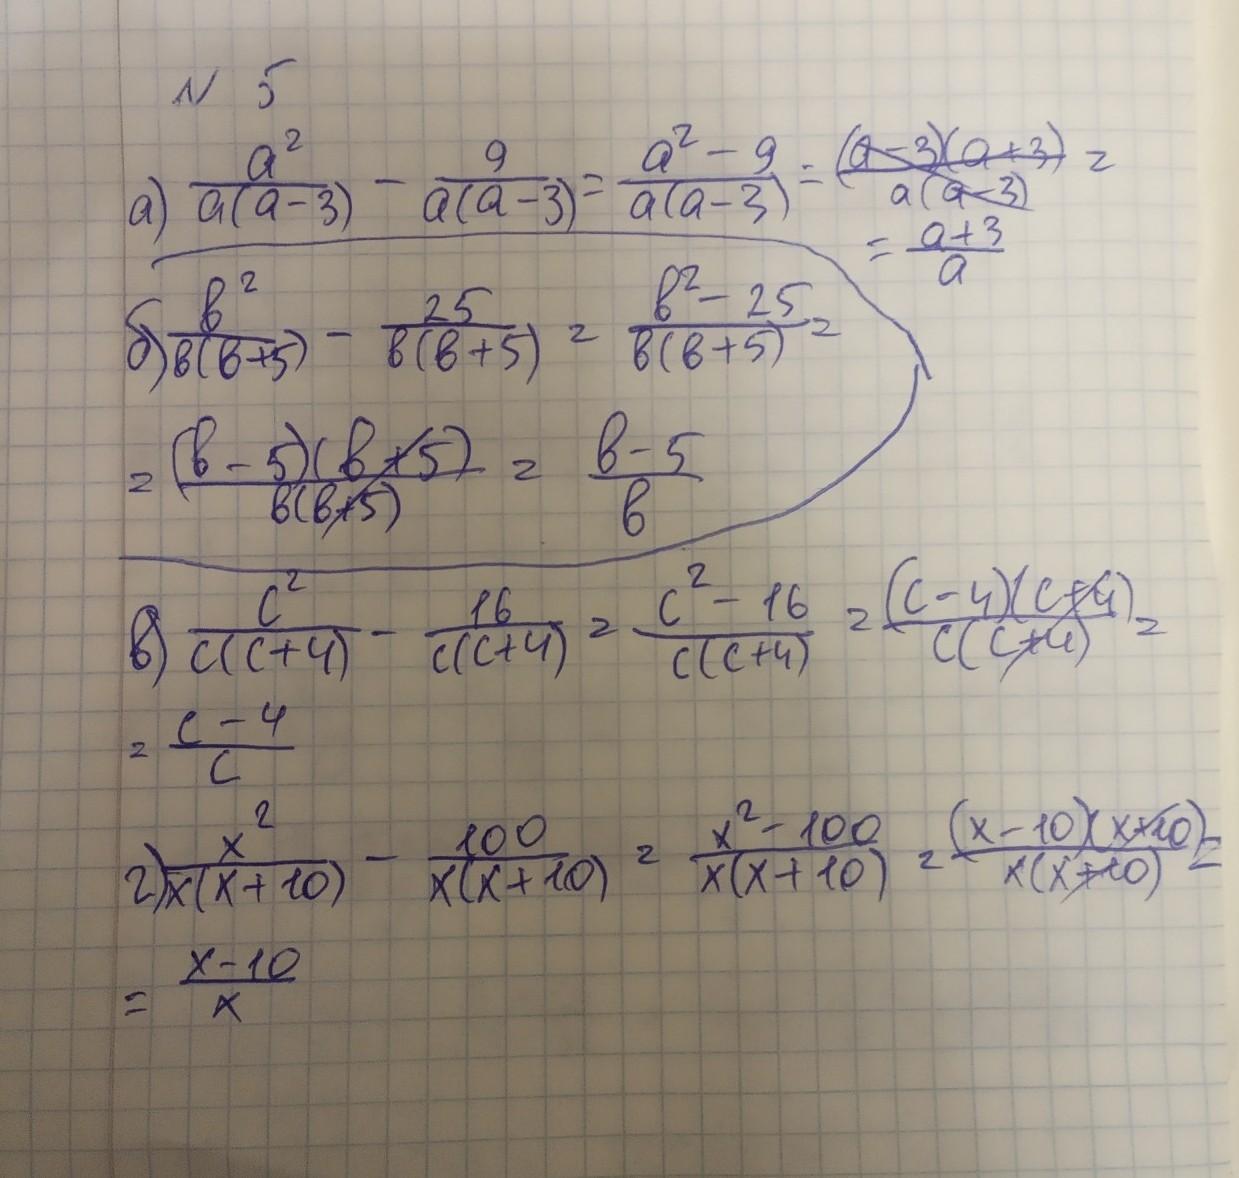 N 5
а) a²/a(a-3) - 9/a(a-3) = a²-9/a(a-3) = (a-3)(a+3)/a(a-3) =
= a+3/a
б) b²/b(b+5) - 25/b(b+5) = b²-25/b(b+5) =
= (b-5)(b+5)/b(b+5) = b-5/b
в) c²/c(c+4) - 16/c(c+4) = c²-16/c(c+4) = (c-4)(c+4)/c(c+4) =
= c-4/c
г) x²/x(x+10) - 100/x(x+10) = x²-100/x(x+10) = (x-10)(x+10)/x(x+10) =
= x-10/x